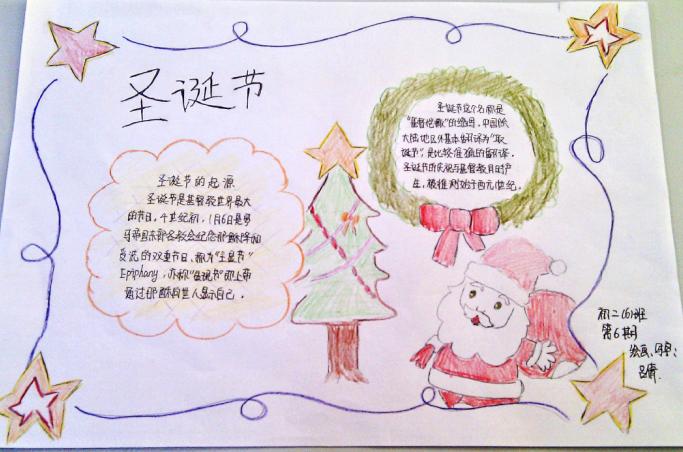 圣诞节
圣诞节的起源
圣诞节是基督教世界最大
的节日,4世纪初,1月6日是罗
马帝国东部各教会纪念耶稣降和
受洗的双重节日、称为"主显节"
Epiphany,亦称"显现节"即上帝
通过耶稣向世人显示自己。
圣诞节这个名称是
"基督弥撒"的缩写,中国
大陆地区外基本翻译为"耶
诞节",是比较准确的翻译。
圣诞节的庆祝与基督教同时产
生,被推测始于西元1世纪。
初二(6)班
第6期
绘画、